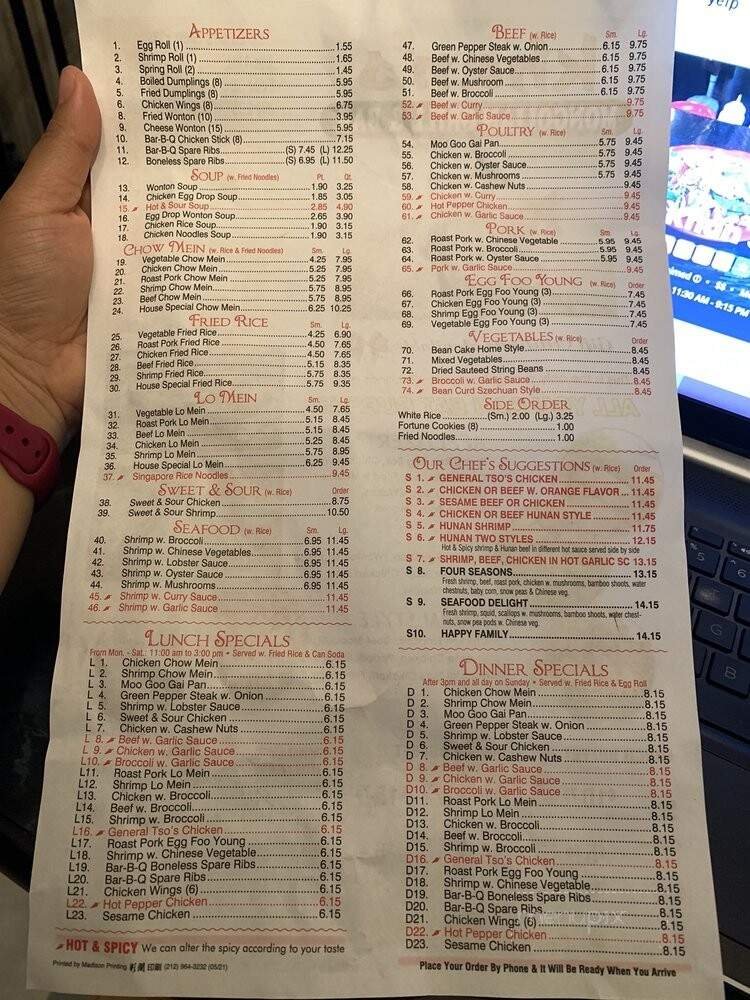 yelp
APPETIZERS
1. Egg Roll (1) 1.55
2. Shrimp Roll (1) 1.65
3. Spring Roll (2) 1.45
4. Boiled Dumplings (8) 5.95
5. Fried Dumplings (8) 5.95
6. Chicken Wings (8) 6.75
8. Fried Wonton (10) 3.95
9. Cheese Wonton (15) 5.95
10. Bar-B-Q Chicken Stick (8) 7.15
11. Bar-B-Q Spare Ribs (S) 7.45 (L) 12.25
12. Boneless Spare Ribs (S) 6.95 (L) 11.50
SOUP (w. Fried Noodles) Pt. Qt.
13. Wonton Soup 1.90 3.25
14. Chicken Egg Drop Soup 1.85 3.05
15. Hot & Sour Soup 2.85 4.90
16. Egg Drop Wonton Soup 2.65 3.90
17. Chicken Rice Soup 1.90 3.15
18. Chicken Noodles Soup 1.90 3.15
CHOW MEIN (w. Rice & Fried Noodles) Sm. Lg.
19. Vegetable Chow Mein 4.25 7.95
20. Chicken Chow Mein 5.25 7.95
21. Roast Pork Chow Mein 5.25 7.95
22. Shrimp Chow Mein 5.75 8.95
23. Beef Chow Mein 5.75 8.95
24. House Special Chow Mein 6.25 10.25
FRIED RICE Sm. Lg.
25. Vegetable Fried Rice 4.25 6.90
26. Roast Pork Fried Rice 4.50 7.65
27. Chicken Fried Rice 4.50 7.65
28. Beef Fried Rice 5.15 8.35
29. Shrimp Fried Rice 5.75 8.35
30. House Special Fried Rice 5.75 9.35
LO MEIN Sm. Lg.
31. Vegetable Lo Mein 4.50 7.65
32. Roast Pork Lo Mein 5.15 8.45
33. Beef Lo Mein 5.15 8.45
34. Chicken Lo Mein 5.25 8.45
35. Shrimp Lo Mein 5.75 8.95
36. House Special Lo Mein 6.25 9.45
37. Singapore Rice Noodles 9.45
SWEET & SOUR (w. Rice) Order
38. Sweet & Sour Chicken 8.75
39. Sweet & Sour Shrimp 10.50
SEAFOOD (w. Rice) Sm. Lg.
40. Shrimp w. Broccoli 6.95 11.45
41. Shrimp w. Chinese Vegetables 6.95 11.45
42. Shrimp w. Lobster Sauce 6.95 11.45
43. Shrimp w. Oyster Sauce 6.95 11.45
44. Shrimp w. Mushrooms 6.95 11.45
45. Shrimp w. Curry Sauce 11.45
46. Shrimp w. Garlic Sauce 11.45
LUNCH SPECIALS
From Mon. - Sat.: 11:00 am to 3:00 pm • Served w. Fried Rice & Can Soda
L 1. Chicken Chow Mein 6.15
L 2. Shrimp Chow Mein 6.15
L 3. Moo Goo Gai Pan 6.15
L 4. Green Pepper Steak w. Onion 6.15
L 5. Shrimp w. Lobster Sauce 6.15
L 6. Sweet & Sour Chicken 6.15
L 7. Chicken w. Cashew Nuts 6.15
L 8. Beef w. Garlic Sauce 6.15
L 9. Chicken w. Garlic Sauce 6.15
L10. Broccoli w. Garlic Sauce 6.15
L11. Roast Pork Lo Mein 6.15
L12. Shrimp Lo Mein 6.15
L13. Chicken w. Broccoli 6.15
L14. Beef w. Broccoli 6.15
L15. Shrimp w. Broccoli 6.15
L16. General Tso's Chicken 6.15
L17. Roast Pork Egg Foo Young 6.15
L18. Shrimp w. Chinese Vegetable 6.15
L19. Bar-B-Q Boneless Spare Ribs 6.15
L20. Bar-B-Q Spare Ribs 6.15
L21. Chicken Wings (6) 6.15
L22. Hot Pepper Chicken 6.15
L23. Sesame Chicken 6.15
HOT & SPICY We can alter the spicy according to your taste
Printed by Madison Printing 印刷 (212) 964-3232 (05/21)
BEEF (w. Rice) Sm. Lg.
47. Green Pepper Steak w. Onion 6.15 9.75
48. Beef w. Chinese Vegetables 6.15 9.75
49. Beef w. Oyster Sauce 6.15 9.75
50. Beef w. Mushroom 6.15 9.75
51. Beef w. Broccoli 6.15 9.75
52. Beef w. Curry 9.75
53. Beef w. Garlic Sauce 9.75
POULTRY (w. Rice) Sm. Lg.
54. Moo Goo Gai Pan 5.75 9.45
55. Chicken w. Broccoli 5.75 9.45
56. Chicken w. Oyster Sauce 5.75 9.45
57. Chicken w. Mushrooms 5.75 9.45
58. Chicken w. Cashew Nuts 9.45
59. Chicken w. Curry 9.45
60. Hot Pepper Chicken 9.45
61. Chicken w. Garlic Sauce 9.45
PORK (w. Rice) Sm. Lg.
62. Roast Pork w. Chinese Vegetable 5.95 9.45
63. Roast Pork w. Broccoli 5.95 9.45
64. Roast Pork w. Oyster Sauce 5.95 9.45
65. Pork w. Garlic Sauce 9.45
EGG FOO YOUNG (w. Rice) Order
66. Roast Pork Egg Foo Young (3) 7.45
67. Chicken Egg Foo Young (3) 7.45
68. Shrimp Egg Foo Young (3) 7.45
69. Vegetable Egg Foo Young (3) 7.45
VEGETABLES (w. Rice) Order
70. Bean Cake Home Style 8.45
71. Mixed Vegetables 8.45
72. Dried Sauteed String Beans 8.45
73. Broccoli w. Garlic Sauce 8.45
74. Bean Curd Szechuan Style 8.45
SIDE ORDER
White Rice (Sm.) 2.00 (Lg.) 3.25
Fortune Cookies (8) 1.00
Fried Noodles 1.00
OUR CHEF'S SUGGESTIONS (w. Rice) Order
S 1. GENERAL TSO'S CHICKEN 11.45
S 2. CHICKEN OR BEEF W. ORANGE FLAVOR 11.45
S 3. SESAME BEEF OR CHICKEN 11.45
S 4. CHICKEN OR BEEF HUNAN STYLE 11.45
S 5. HUNAN SHRIMP 11.75
S 6. HUNAN TWO STYLES 12.15
Hot & Spicy shrimp & Hunan beef in different hot sauce served side by side
S 7. SHRIMP, BEEF, CHICKEN IN HOT GARLIC SC 13.15
S 8. FOUR SEASONS 13.15
Fresh shrimp, beef, roast pork, chicken w. mushrooms, bamboo shoots, water
chestnuts, baby corn, snow peas & Chinese veg.
S 9. SEAFOOD DELIGHT 14.15
Fresh shrimp, squid, scallops w. mushrooms, bamboo shoots, water chest-
nuts, snow pea pods w. Chinese veg.
S10. HAPPY FAMILY 14.15
DINNER SPECIALS
After 3pm and all day on Sunday • Served w. Fried Rice & Egg Roll
D 1. Chicken Chow Mein 8.15
D 2. Shrimp Chow Mein 8.15
D 3. Moo Goo Gai Pan 8.15
D 4. Green Pepper Steak w. Onion 8.15
D 5. Shrimp w. Lobster Sauce 8.15
D 6. Sweet & Sour Chicken 8.15
D 7. Chicken w. Cashew Nuts 8.15
D 8. Beef w. Garlic Sauce 8.15
D 9. Chicken w. Garlic Sauce 8.15
D10. Broccoli w. Garlic Sauce 8.15
D11. Roast Pork Lo Mein 8.15
D12. Shrimp Lo Mein 8.15
D13. Chicken w. Broccoli 8.15
D14. Beef w. Broccoli 8.15
D15. Shrimp w. Broccoli 8.15
D16. General Tso's Chicken 8.15
D17. Roast Pork Egg Foo Young 8.15
D18. Shrimp w. Chinese Vegetable 8.15
D19. Bar-B-Q Boneless Spare Ribs 8.15
D20. Bar-B-Q Spare Ribs 8.15
D21. Chicken Wings (6) 8.15
D22. Hot Pepper Chicken 8.15
D23. Sesame Chicken 8.15
Place Your Order By Phone & It Will Be Ready When You Arrive
11:30 AM - 9:15 PM